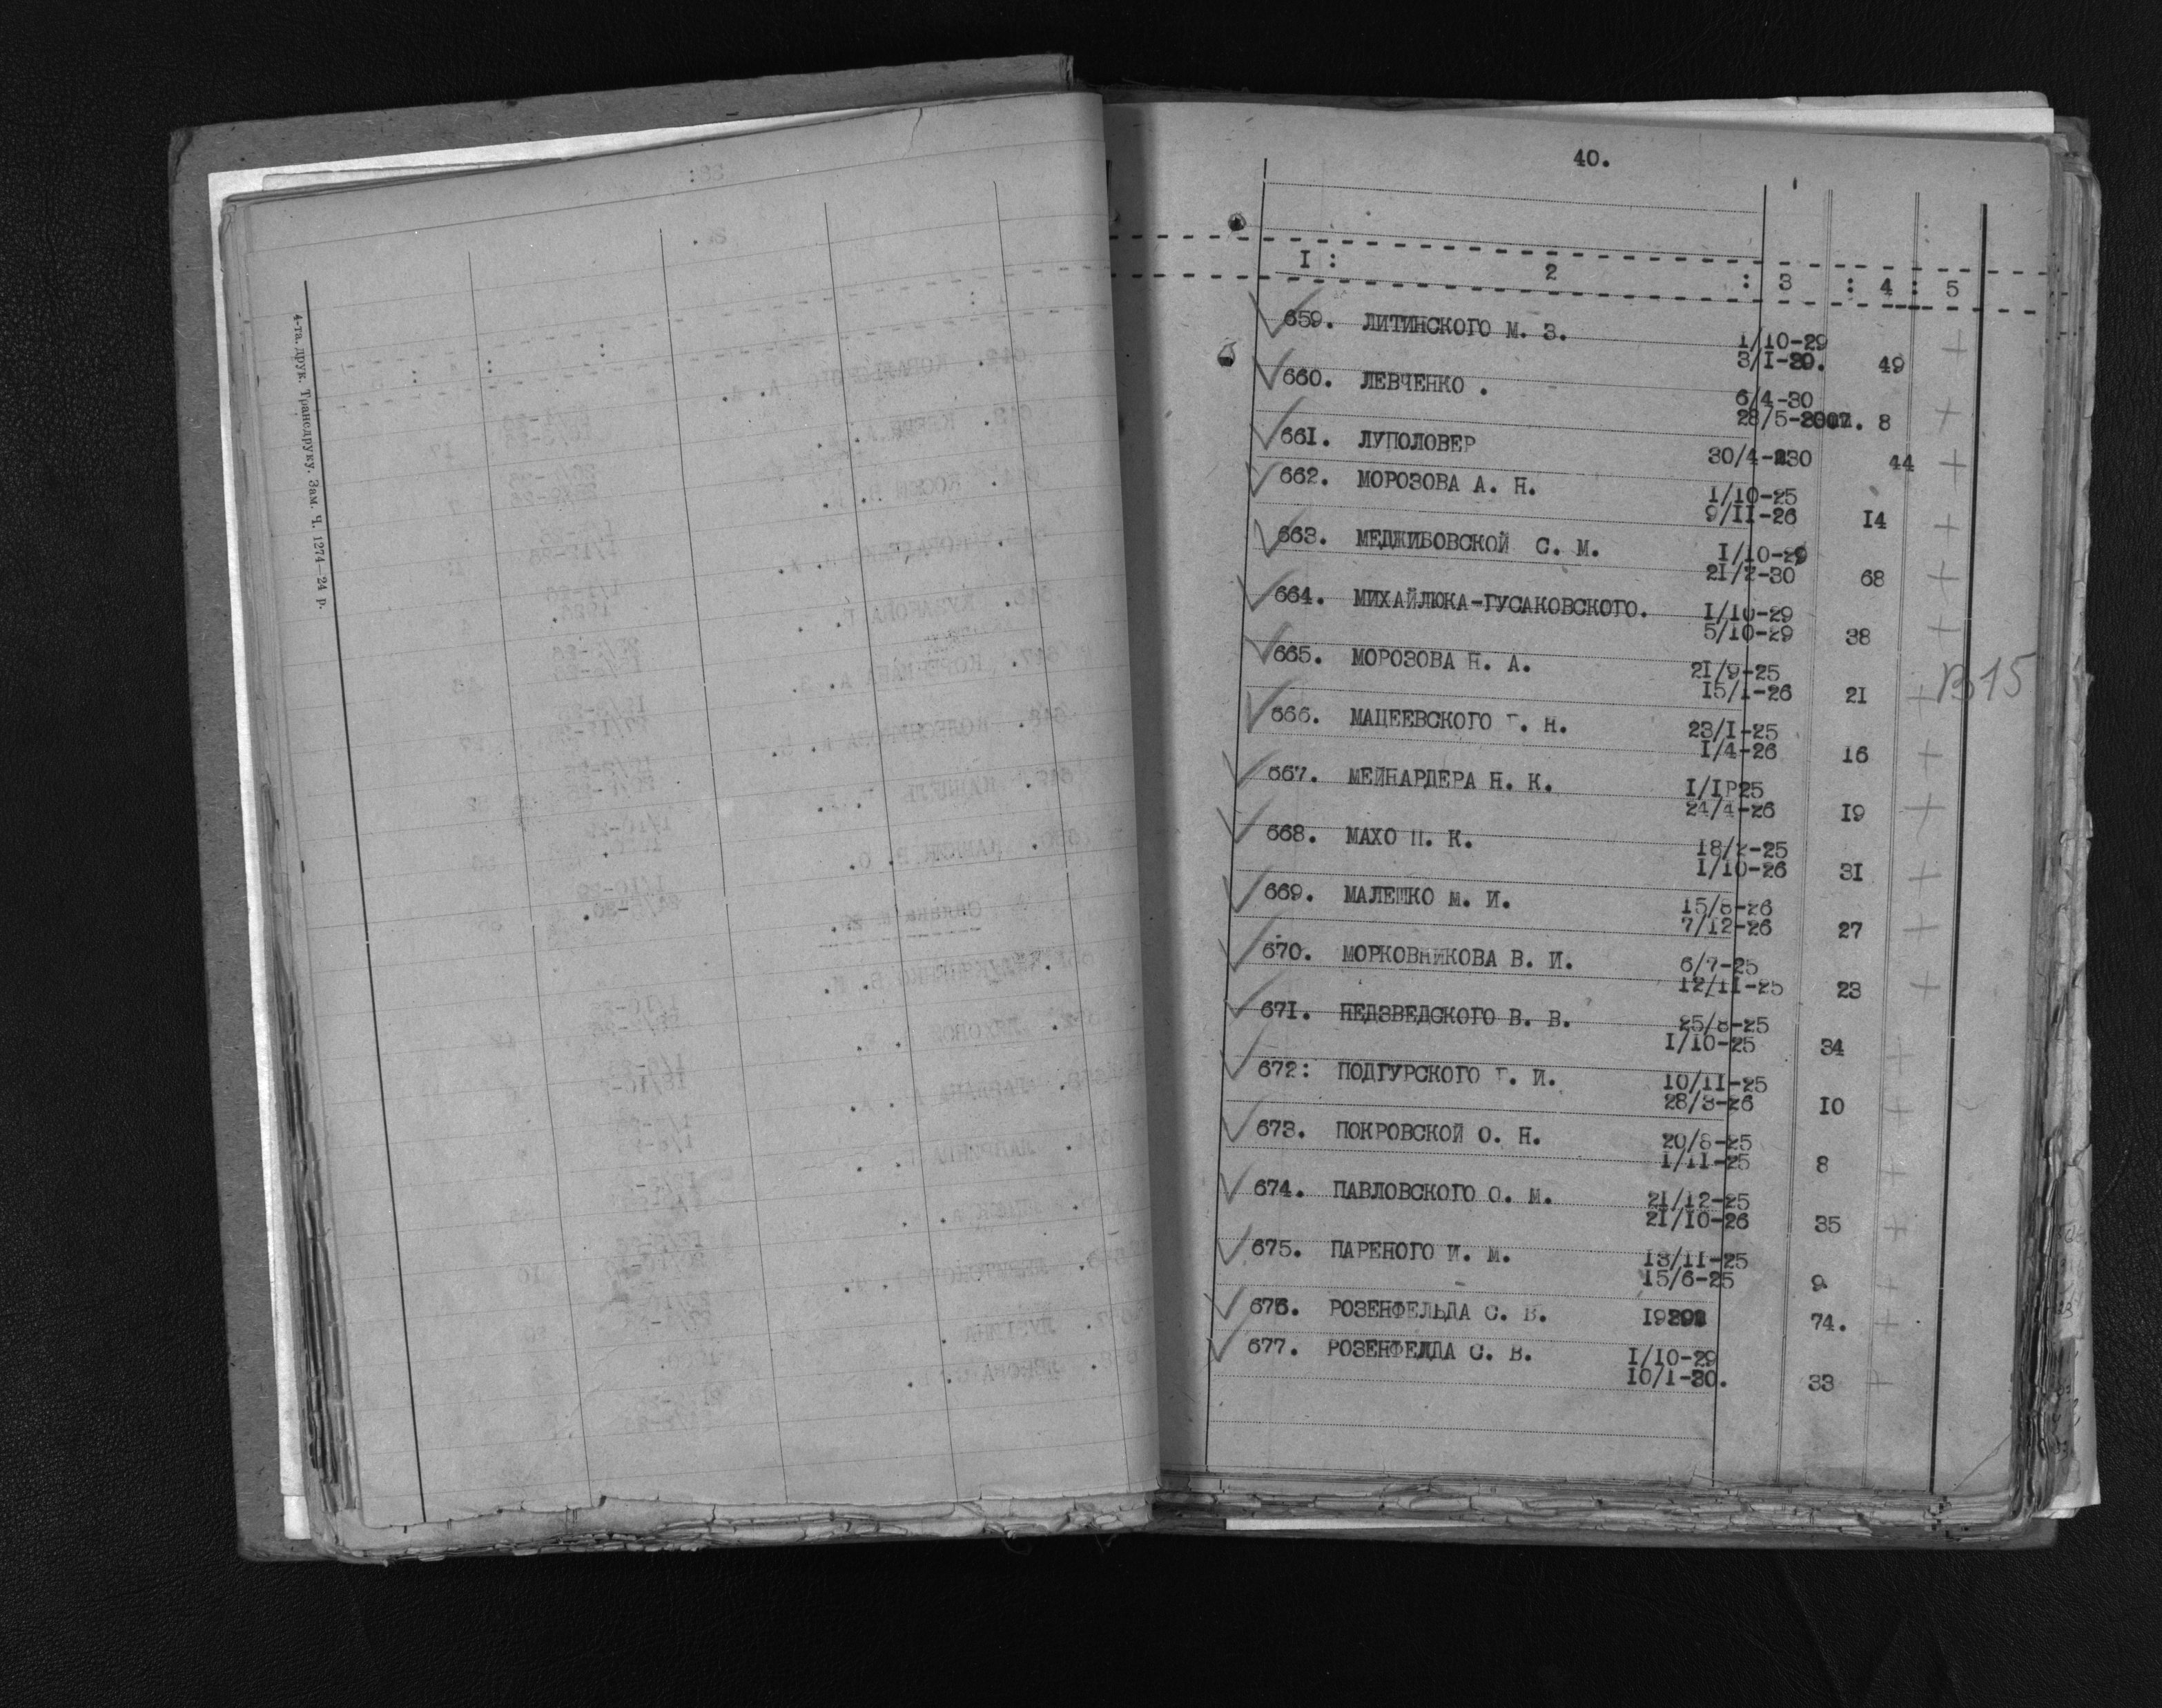 4-та. друк. Трансдруку. Зам. Ч. 1274—24 р.
40.
I : 2 : 3 : 4 : 5
659. ЛИТИНСКОГО М. З. 1/10-29
3/I-30. 49 +
660. ЛЕВЧЕНКО . 6/4-30
28/5- 8 +
661. ЛУПОЛОВЕР 30/4-30 44 +
662. МОРОЗОВА А. Н. 1/10-25
9/II-26 I4 +
663. МЕДЖИБОВСКОЙ С. М. I/10-29
2I/2-30 68 +
664. МИХАЙЛЮКА-ГУСАКОВСКОГО. I/10-29
5/10-29 38 +
665. МОРОЗОВА Н. А. 2I/9-25
I5/I-26 2I + В15
666. МАЦЕЕВСКОГО Г. Н. 23/I-25
I/4-26 I6 +
667. МЕЙНАРДЕРА Н. К. I/IP25
24/4-26 I9 +
668. МАХО П. К. I8/2-25
I/10-26 3I +
669. МАЛЕШКО М. И. I5/8-26
7/I2-26 27 +
670. МОРКОВНИКОВА В. И. 6/7-25
I2/II-25 23 +
67I. НЕДЗВЕДСКОГО В. В. 25/8-25
I/10-25 34 +
672: ПОДГУРСКОГО Г. И. I0/II-25
28/3-26 I0 +
673. ПОКРОВСКОЙ О. Н. 20/8-25
I/II-25 8 +
674. ПАВЛОВСКОГО О. М. 2I/I2-25
2I/I0-26 35 +
675. ПАРЕНОГО И. М. I3/II-25
I5/6-25 9 +
676. РОЗЕНФЕЛЬДА С. В. 74. +
677. РОЗЕНФЕЛДА С. В. I/10-29
I0/I-30. 33 +